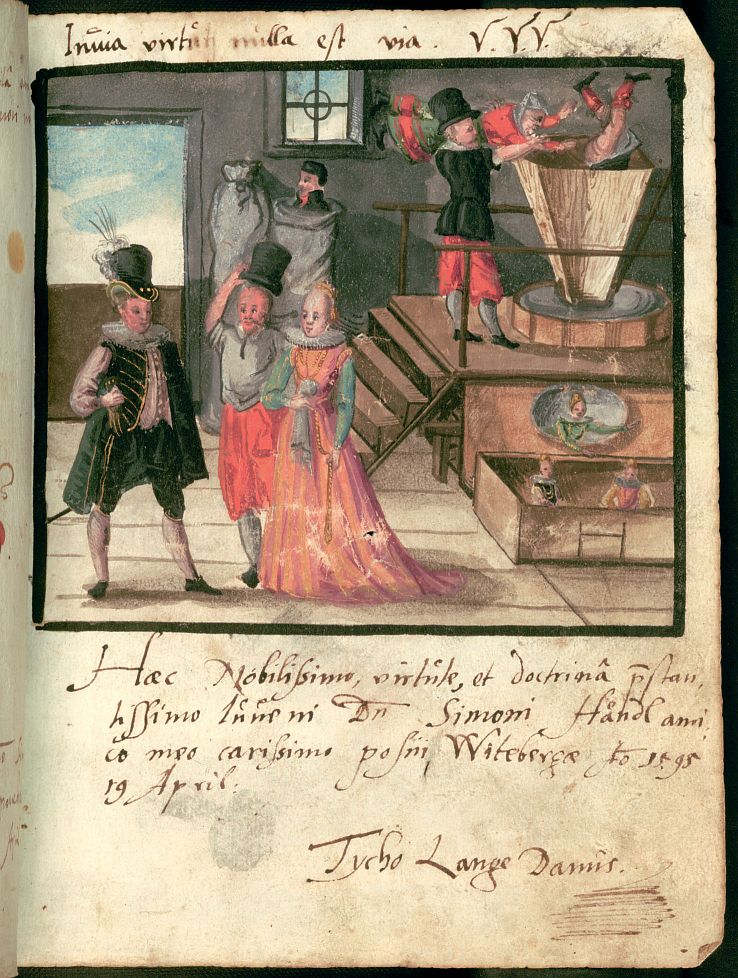 Inuia virtuti nulla est via. V. V. V.
Hæc Nobilissimo, virtute, et doctrinâ p̄stan,
tissimo Iuueni Dn̄ Simoni Händl ami,
co meo carissimo posui, Witebergæ 1595
19 April.
Tycho Lange Danus.